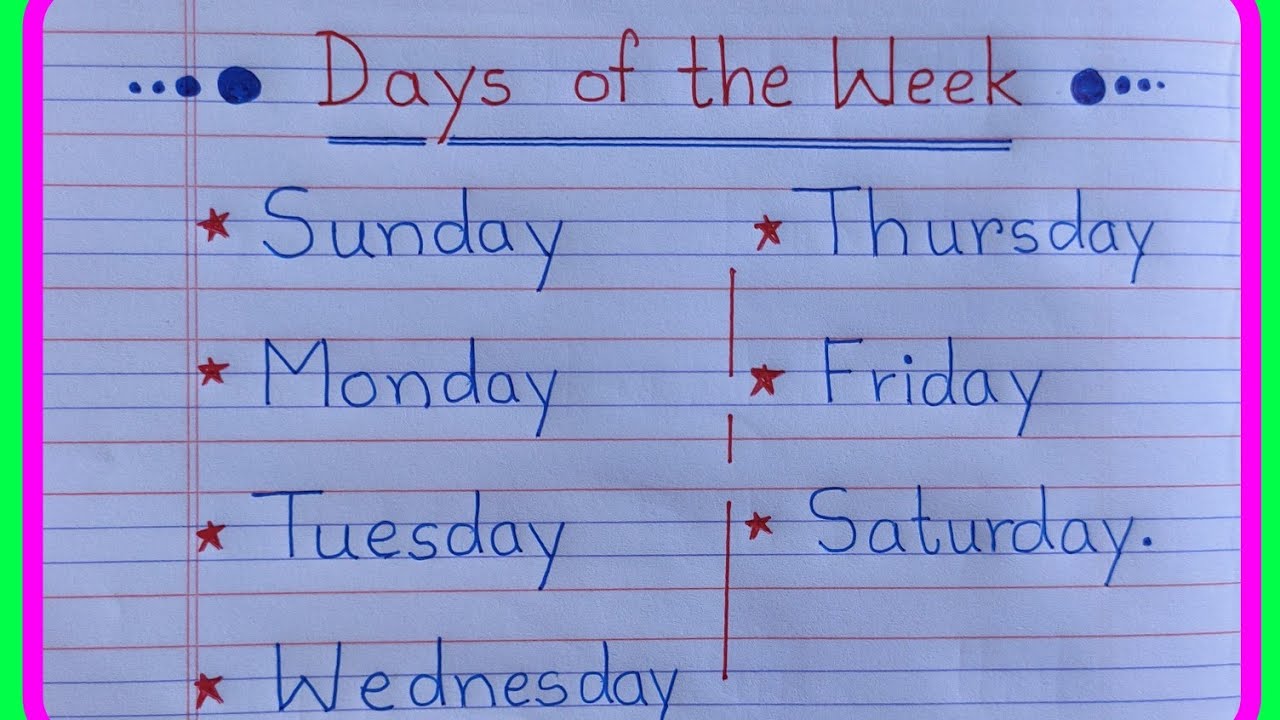 Days of the Week
Sunday
Monday
Tuesday
Wednesday
Thursday
Friday
Saturday.